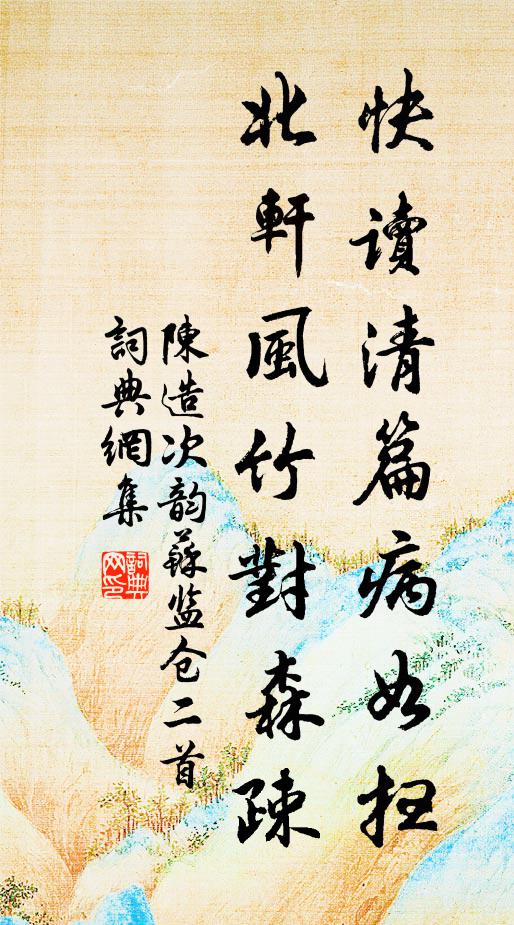 快讀清篇病如扫
北軒風竹對森疎
陳造次韵蘇监仓二首
詞典網集
詞典网印